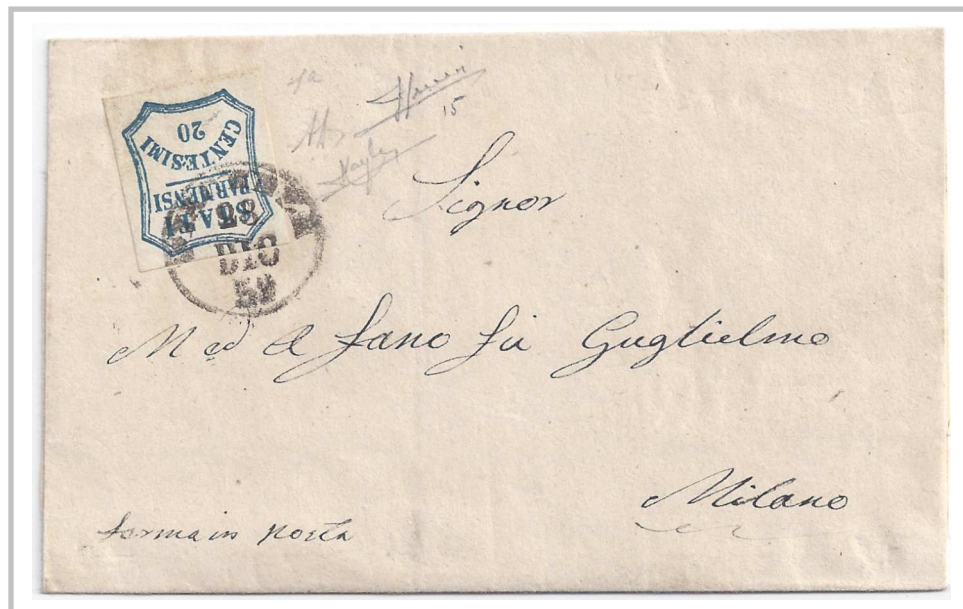 STATI
PARMENSI
CENTESIMI
20
DIC
59
15
Signor
M ed A Fano fu Guglielmo
Milano
ferma in Posta